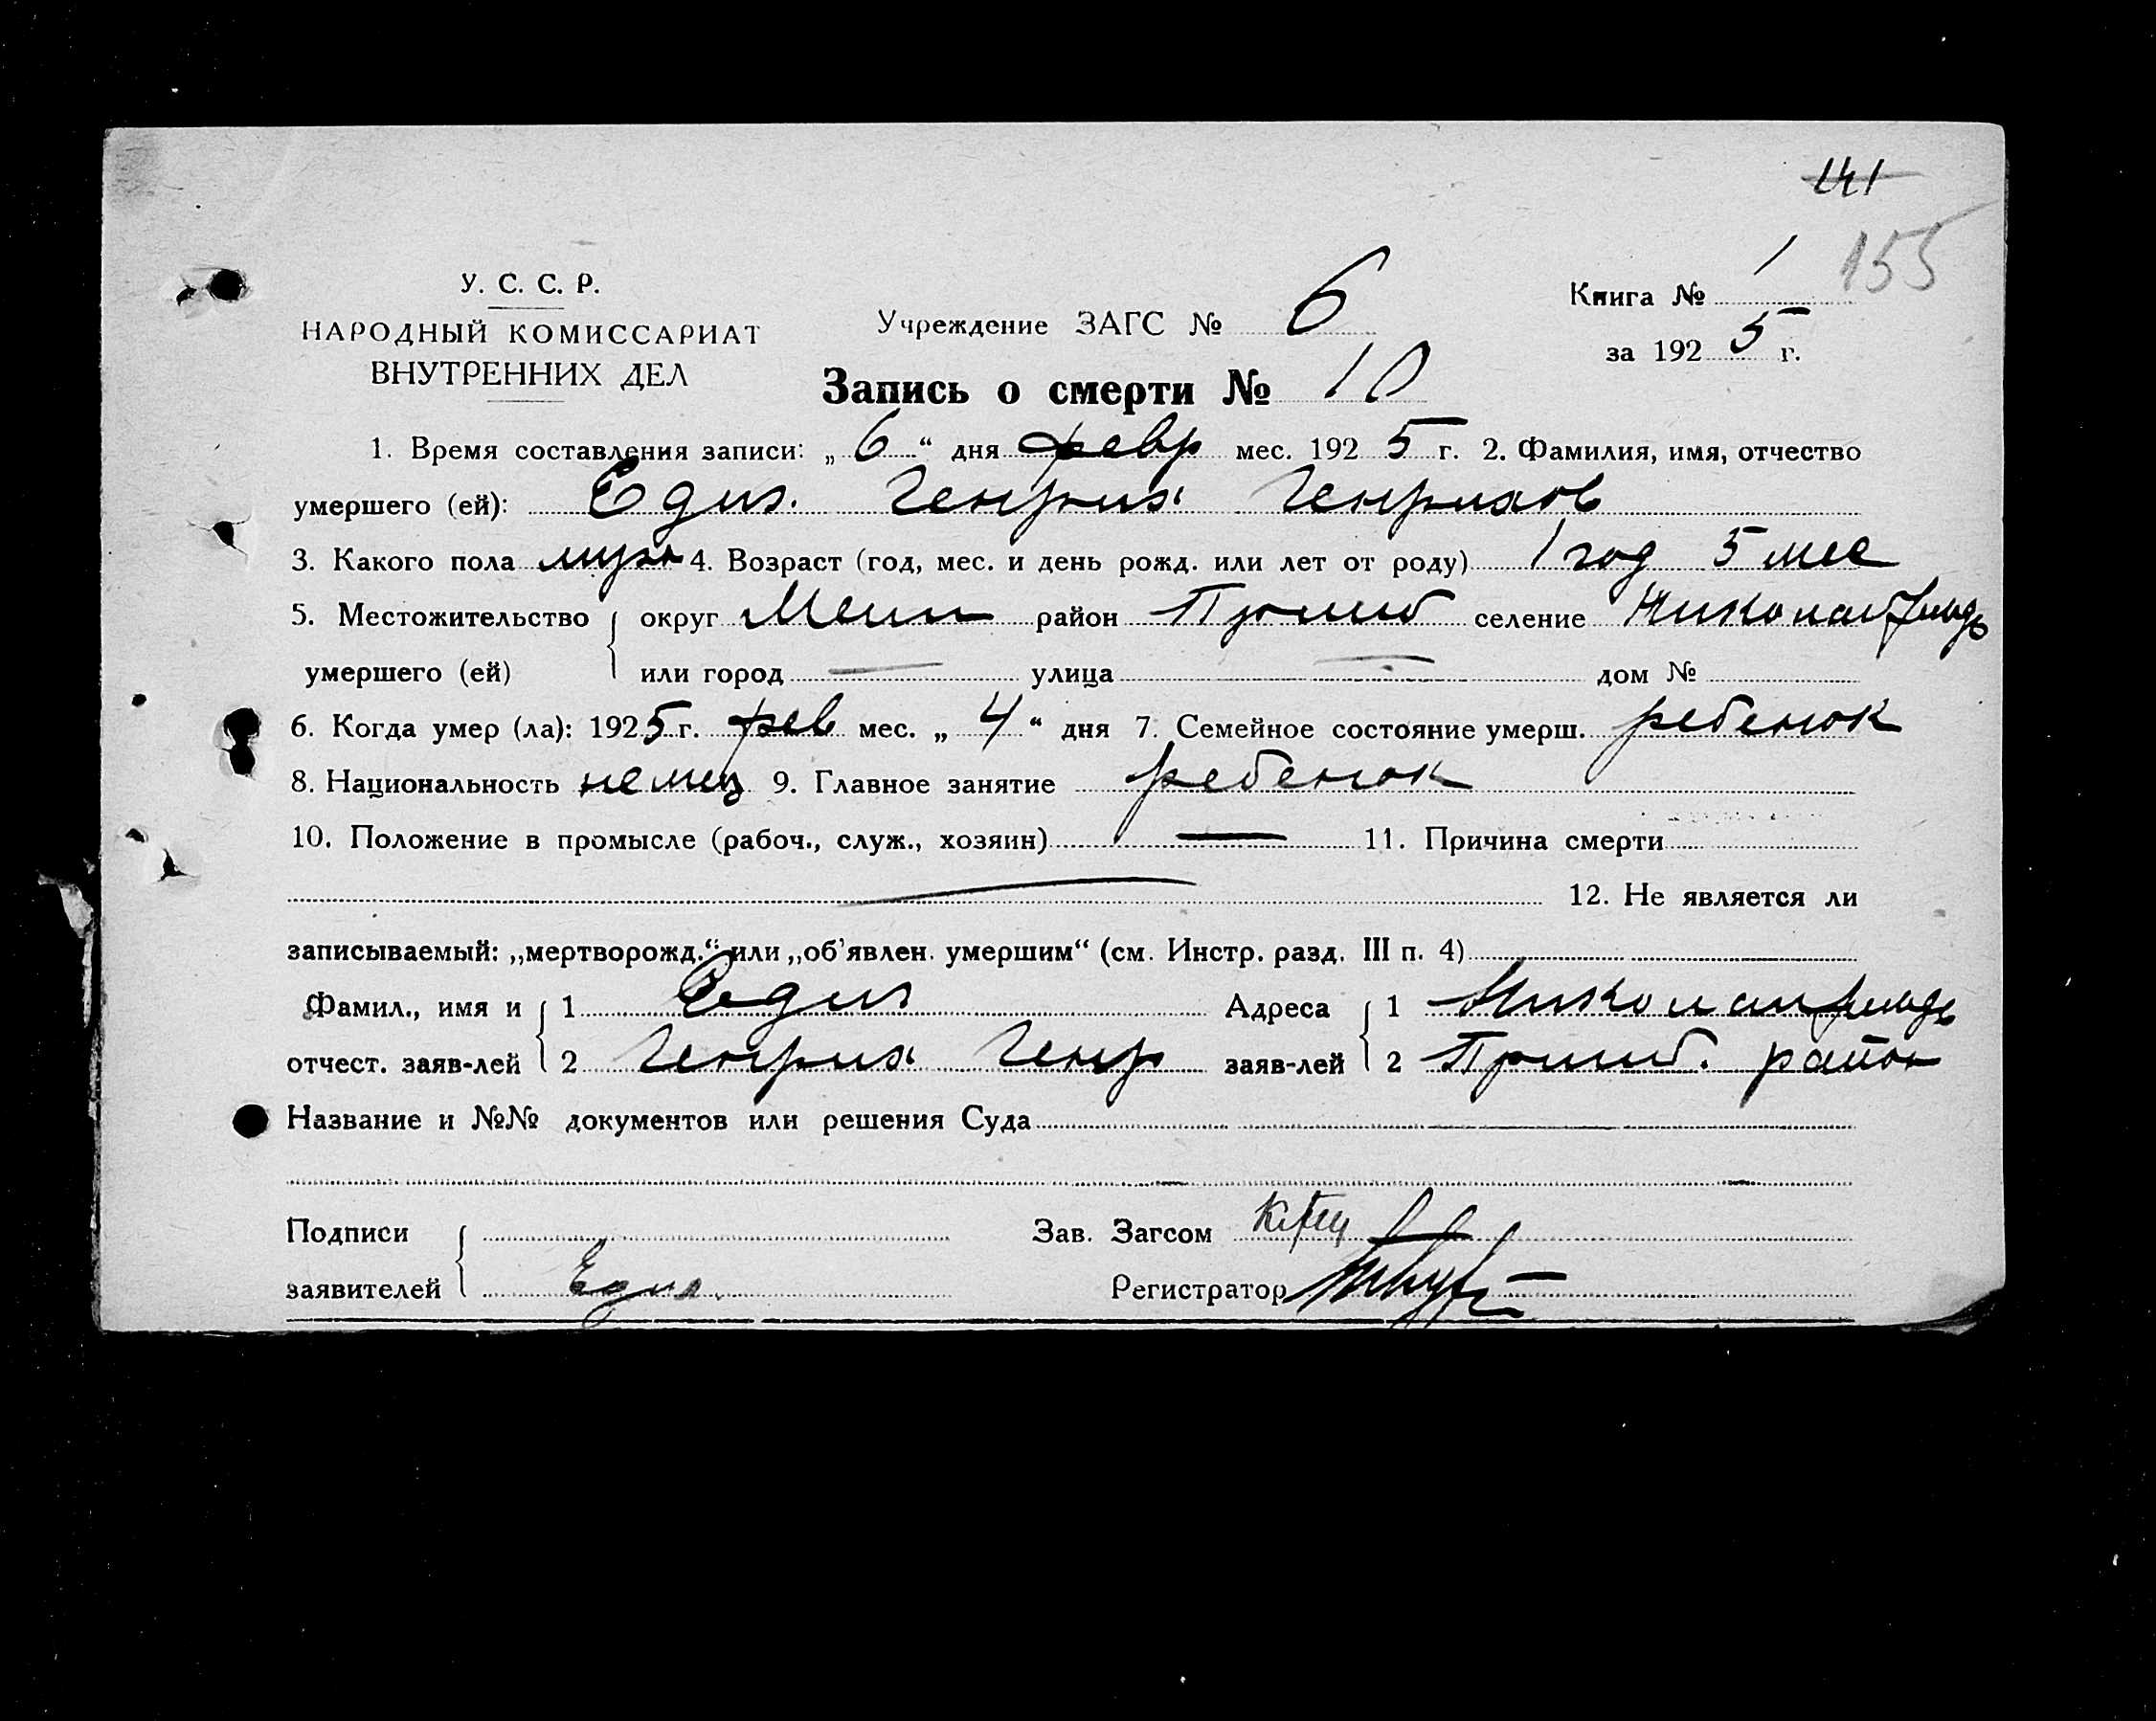 141
155
У. С. С. Р.
НАРОДНЫЙ КОМИССАРИАТ
ВНУТРЕННИХ ДЕЛ
Учреждение ЗАГС № 6
Книга № 1
за 1925 г.
Запись о смерти № 10
1. Время составления записи: „6“ дня февр мес. 1925 г. 2. Фамилия, имя, отчество
умершего (ей): Едиг. Генрих Генрихов
3. Какого пола муж 4. Возраст (год, мес. и день рожд. или лет от роду) 1 год 5 мес
5. Местожительство округ Мелит район Пришиб селение Николайфельдь
умершего (ей) или город — улица — дом №
6. Когда умер (ла): 1925 г. фев мес. „4“ дня 7. Семейное состояние умерш. ребенок
8. Национальность немец 9. Главное занятие ребенок
10. Положение в промысле (рабоч., служ., хозяин) — 11. Причина смерти
— 12. Не является ли
записываемый: „мертворожд.“ или „об'явлен. умершим“ (см. Инстр. разд. III п. 4)
Фамил., имя и 1 Едиг Адреса 1 Николайфельдь
отчест. заяв-лей 2 Генрих Генр заяв-лей 2 Пришиб. район
Название и №№ документов или решения Суда
Подписи Зав. Загсом
заявителей Едиг. Регистратор